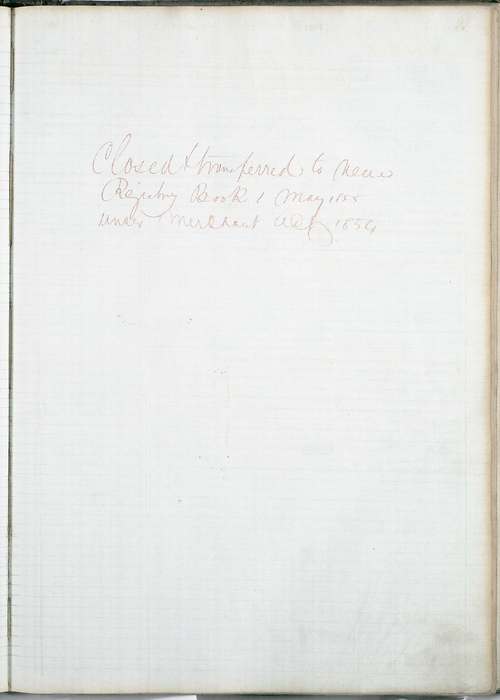 Closed & transferred to new
Registry Book 1 May 1855
under Merchant Act 1854